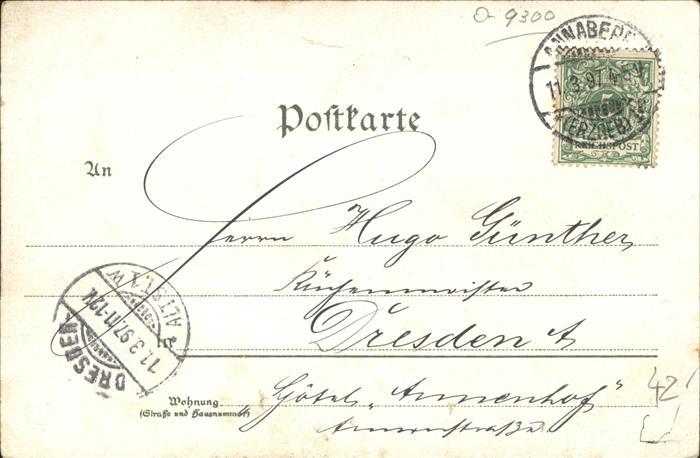 0-9300
ANNABERG
11.3.97. 4-5N.
(ERZGEB.)
5
REICHSPOST
Postkarte
An
Herrn Hugo Günther,
Küchenmeister
in Dresden A
Hôtel „Annenhof"
Wohnung
(Straße und Hausnummer)
Annenstraße.
DRESDEN
ALTST.
11.3.97. 11-12V.
42